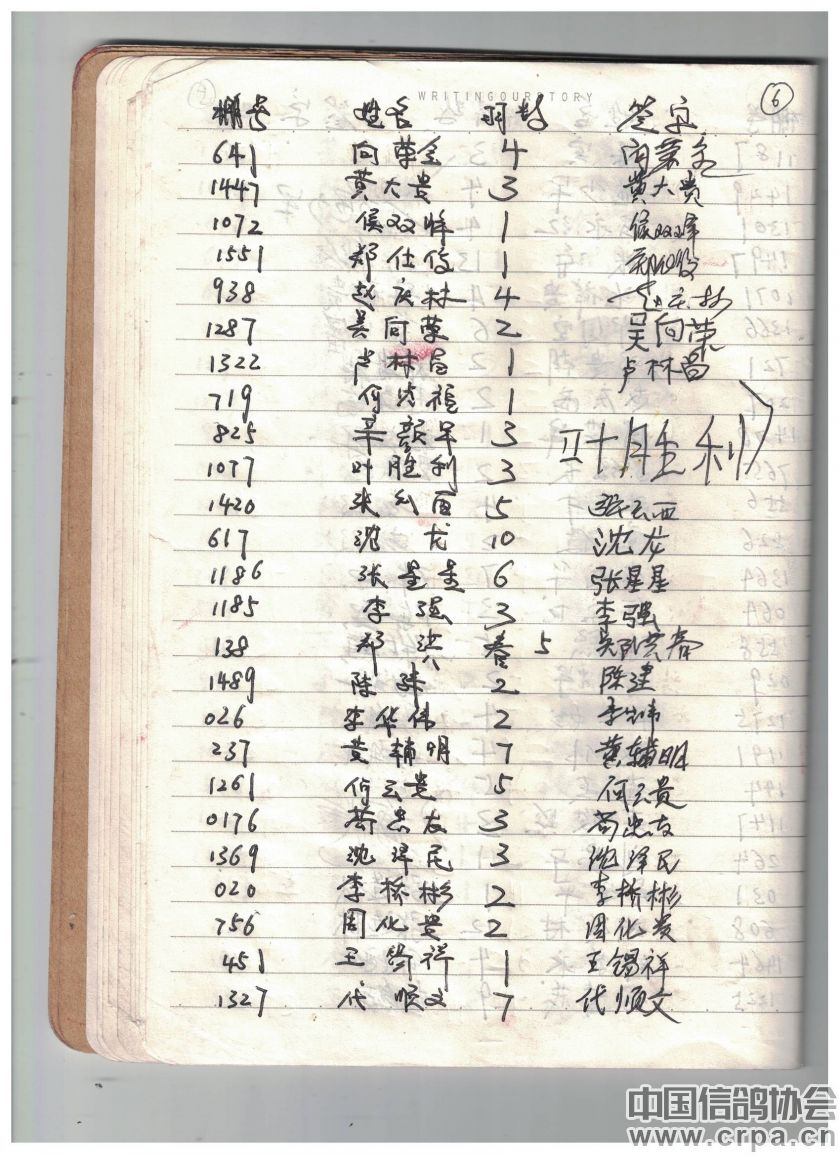 WRITINGOURSTORY
⑥
棚号 姓名 羽数 签字
641 向荣全 4 向荣全
1447 黄大贵 3 黄大贵
1072 侯双峰 1 侯双峰
1551 郑仕俊 1 郑仕俊
938 赵庆林 4 赵庆林
1287 吴向荣 2 吴向荣
1322 卢林昌 1 卢林昌
719 何 1
825 3
1077 叶胜利 3 叶胜利
1420 张云西 5 张云西
617 沈龙 10 沈龙
1186 张星星 6 张星星
1185 李强 3 李强
138 郑洪春 5 郑洪春
1489 陈建 2 陈建
026 李华伟 2 李华伟
237 黄辅明 7 黄辅明
1261 何云贵 5 何云贵
0176 苟忠友 3 苟忠友
1369 沈泽民 3 沈泽民
020 李桥彬 2 李桥彬
756 周化贵 2 周化贵
451 王锡祥 1 王锡祥
1327 代顺文 7 代顺文
中国信鸽协会
www.crpa.cn